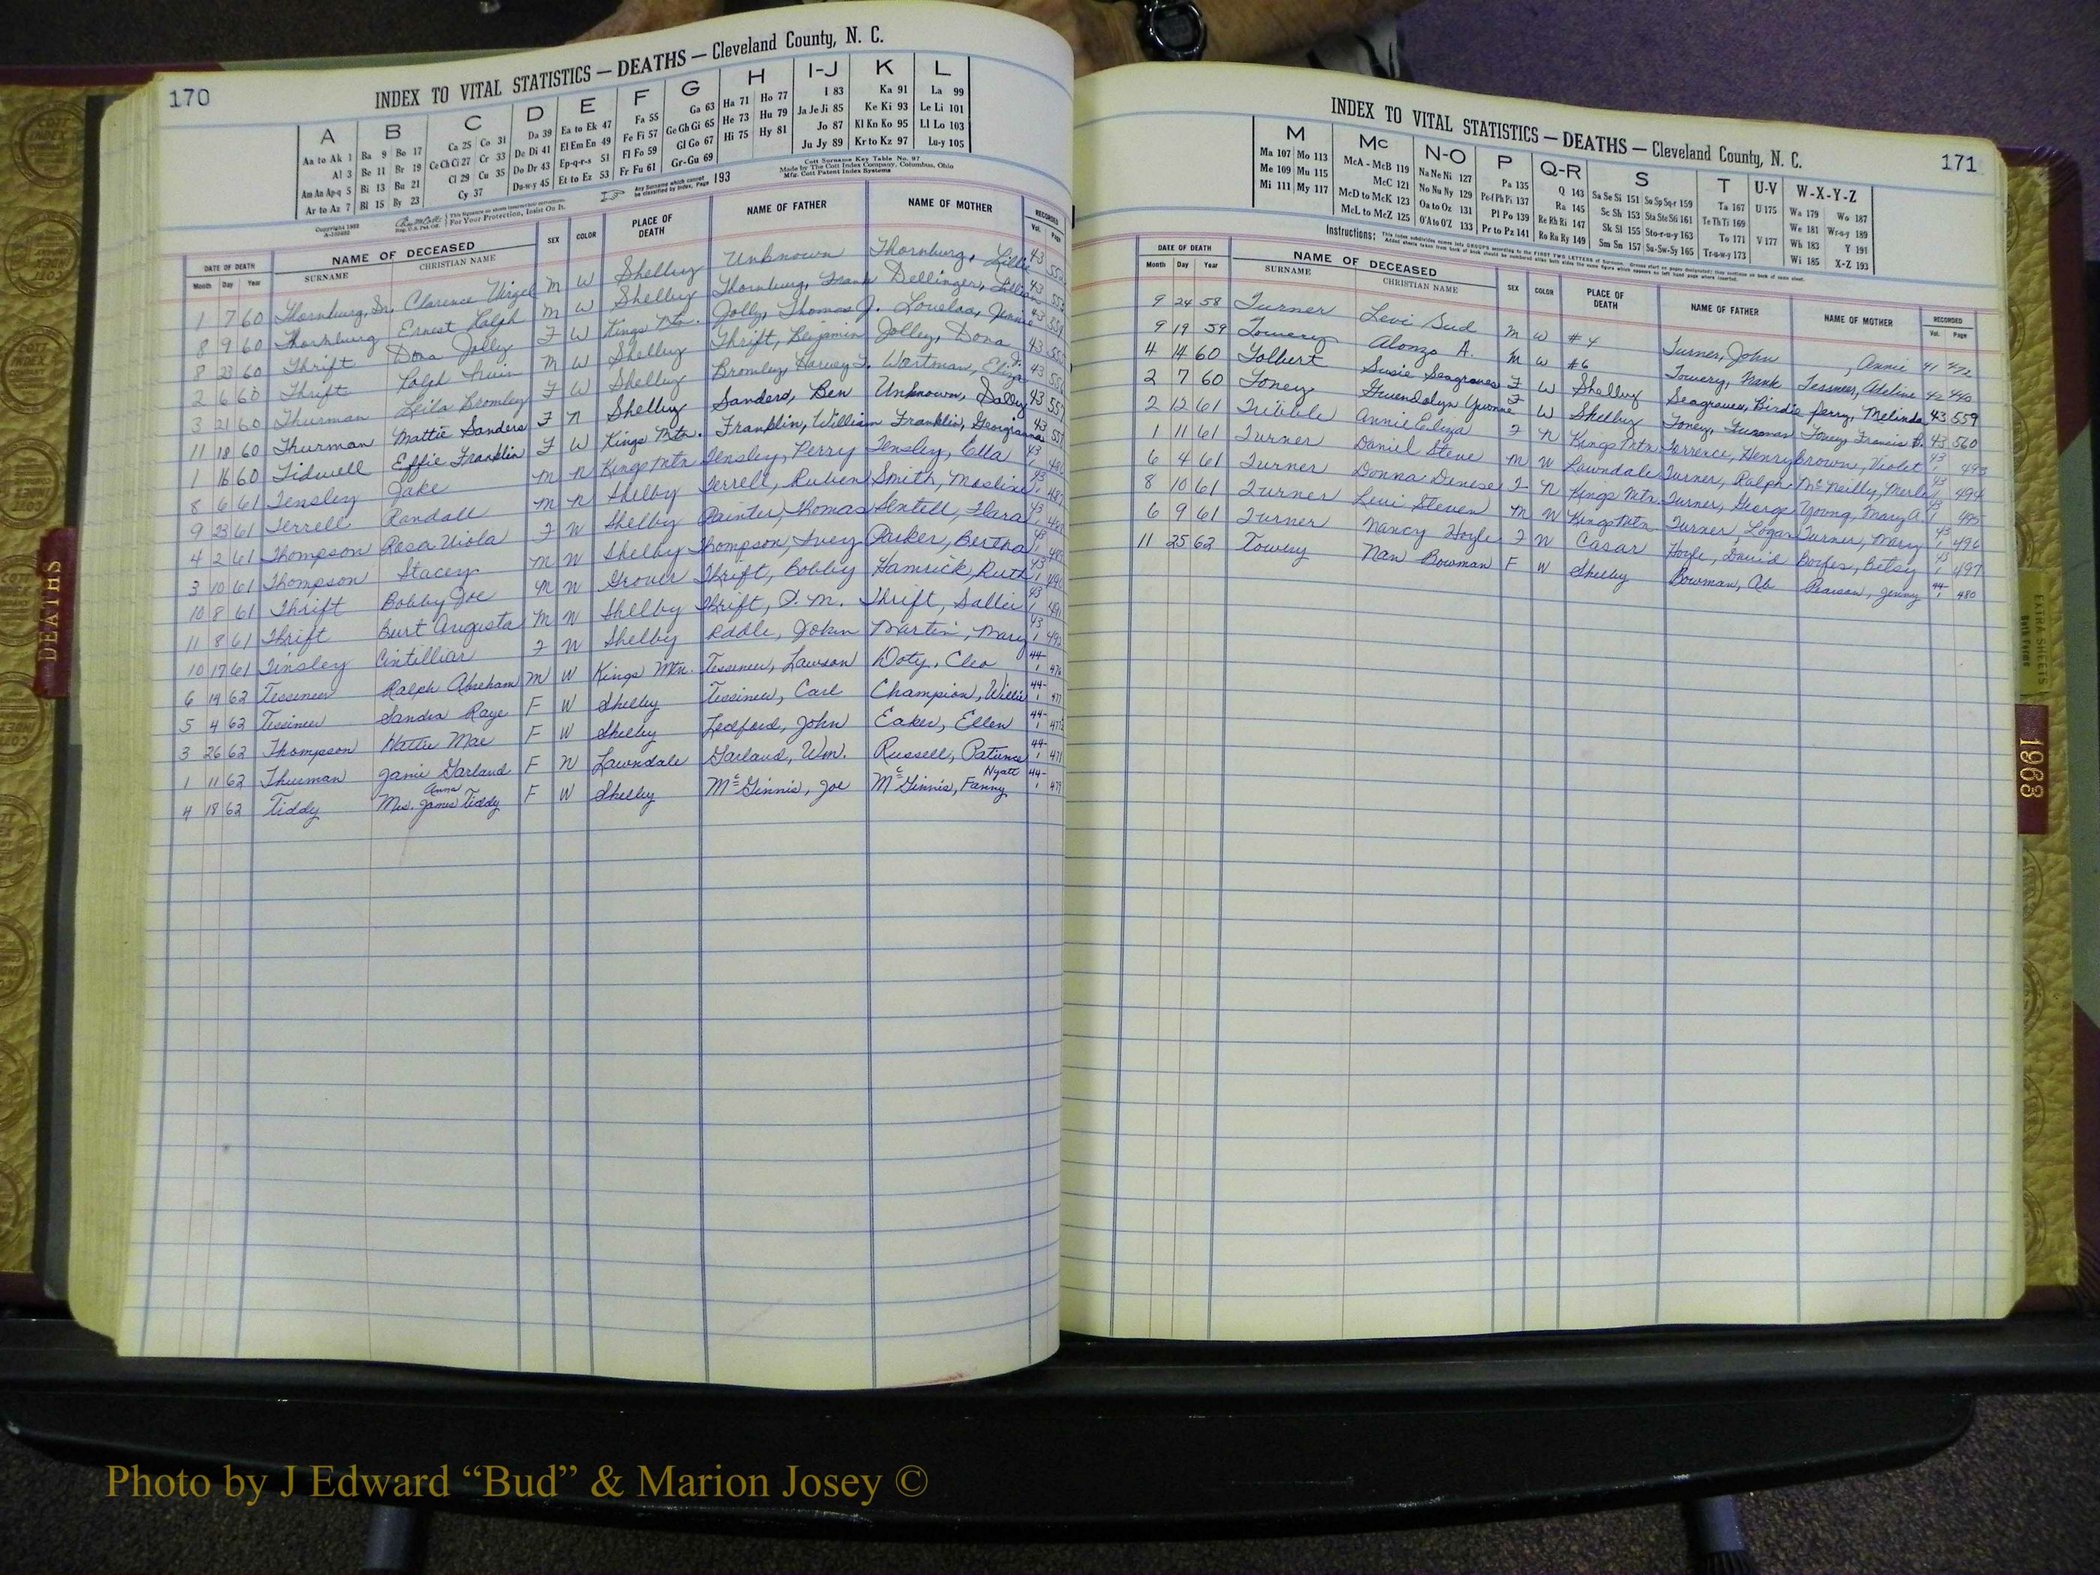 170
INDEX TO VITAL STATISTICS — DEATHS — Cleveland County, N. C.
A B C D E F G H I-J K L
Aa to Ak 1 Ba 9 Bo 17 Ca 25 Co 31 Da 39 Ea to Ek 47 Fa 55 Ga 63 Ha 71 Ho 77 I 83 Ka 91 La 99
Al 3 Be 11 Br 19 Ce Ch Ci 27 Cr 33 De Di 41 El Em En 49 Fe Fi 57 Ge Gh Gi 65 He 73 Hu 79 Ja Je Ji 85 Ke Ki 93 Le Li 101
Am An Ap-q 5 Bi 13 Bu 21 Cl 29 Cu 35 Do Dr 43 Ep-q-r-s 51 Fl Fo 59 Gl Go 67 Hi 75 Hy 81 Jo 87 Kl Kn Ko 95 Ll Lo 103
Ar to Az 7 Bl 15 By 23 Cy 37 Du-w-y 45 Et to Ez 53 Fr Fu 61 Gr-Gu 69 Ju Jy 89 Kr to Kz 97 Lu-y 105
Any Surname which cannot be classified by index, Page 193
Cott Surname Key Table No. 97
Made by The Cott Index Company, Columbus, Ohio
Mfg. Cott Patent Index Systems
For Your Protection, Insist On It.
DATE OF DEATH NAME OF DECEASED SEX COLOR PLACE OF DEATH NAME OF FATHER NAME OF MOTHER RECORDED
Month Day Year SURNAME CHRISTIAN NAME Vol. Page
1 7 60 Thornburg, Sr. Clarence Virgel M W Shelby Unknown Thornburg, Lillie 43 552
8 9 60 Thornburg Ernest Ralph M W Shelby Thornburg, Frank Dellinger, 43 553
8 23 60 Thrift Dona Jolley F W Kings Mtn. Jolly, Thomas J. Lovelas, Jennie 43
2 6 60 Thrift Ralph Irvin M W Shelby Thrift, Benjamin Jolley, Dona 43
3 21 60 Thurman Leila Bromley F W Shelby Bromley, Harvey T. Wortman, Eliza 43
11 18 60 Thurman Mattie Sanders F N Shelby Sanders, Ben Unknown, Sally 43
1 16 60 Tidwell Effie Franklin F W Kings Mtn. Franklin, William Franklin, Georgianna 43
8 6 61 Tensley Jake M N Kings Mtn Tensley, Perry Tensley, Ella 43
9 23 61 Terrell Randall M N Shelby Terrell, Ruben Smith, 43
4 2 61 Thompson Rosa Viola F W Shelby Painter, Thomas Sentell, Flara 43
3 10 61 Thompson Stacey M W Shelby Thompson, Ivey Parker, Bertha 43
10 8 61 Thrift Bobby Joe M W Grover Thrift, Bobby Hamrick, Ruth 43
11 8 61 Thrift Burt Augusta M W Shelby Thrift, D. M. Thrift, Sallie 43
10 17 61 Tinsley F W Shelby John Martin, Mary 43
6 14 62 Tessineer Ralph Abraham M W Kings Mtn. Tessineer, Lawson Doty, Cleo 44-1 476
5 4 62 Tessineer Sandra Raye F W Shelby Tessineer, Carl Champion, Willie 44-1 477
3 26 62 Thompson Hattie Mae F W Shelby Ledford, John Eaker, Ellen 44-1
1 11 62 Thurman Janie Garland F N Lawndale Garland, Wm. Russell, Patience 44-1
4 18 62 Tiddy Mrs. James Anna Tiddy F W Shelby McGinnis, Joe McGinnis, Fanny Hyatt 44-1 479
171
INDEX TO VITAL STATISTICS — DEATHS — Cleveland County, N. C.
M Mc N-O P Q-R S T U-V W-X-Y-Z
Ma 107 Mo 113 McA - McB 119 Na Ne Ni 127 Pa 135 Q 143 Sa Se Si 151 So Sp Sq-r 159 Ta 167 U 175 Wa 179 Wo 187
Me 109 Mu 115 McC 121 No Nu Ny 129 Pe-f Ph Pi 137 Ra 145 Sc Sh 153 Sta Ste Sti 161 Te Th Ti 169 We 181 Wr-u-y 189
Mi 111 My 117 McD to McK 123 Oa to Oz 131 Pl Po 139 Re Rh Ri 147 Sk Sl 155 Sto-r-u-y 163 To 171 V 177 Wh 183 Y 191
McL to McZ 125 O'A to O'Z 133 Pr to Pz 141 Ro Ru Ry 149 Sm Sn 157 Su-Sw-Sy 165 Tr-u-w-y 173 Wi 185 X-Z 193
Instructions:
DATE OF DEATH NAME OF DECEASED SEX COLOR PLACE OF DEATH NAME OF FATHER NAME OF MOTHER RECORDED
Month Day Year SURNAME CHRISTIAN NAME Vol. Page
9 24 58 Turner Levi Sud M W #4 Turner, John , Annie 41 472
9 19 59 Towery Alonzo A. M W #6 Towery, Mank Tessneer, Adeline 42 440
4 14 60 Tolbert Susie Seagraves F W Shelby Seagraves, Birdie Perry, Melinda 43 559
2 7 60 Toney Gwendolyn Yvonne F W Shelby Toney, Furman Toney, Francis B. 43 560
2 12 61 Tribble Annie Eliza F N Kings Mtn Torrence, Henry Brown, Violet 43 1 493
1 11 61 Turner Daniel Steve M W Lawndale Turner, Ralph McNeilly, Merle 43 1 494
6 4 61 Turner Donna Denese F N Kings Mtn. Turner, George Young, Mary A. 43 1 495
8 10 61 Turner Levi Steven M W Kings Mtn Turner, Logan Turner, Mary 43 1 496
6 9 61 Turner Nancy Hoyle F W Casar Hoyle, David Betsy 43 1 497
11 25 62 Towery Nan Bowman F W Shelby Bowman, Ab Pearson, Jenny 44-1 480
DEATHS
EXTRA SHEETS
1968
Photo by J Edward “Bud” & Marion Josey ©